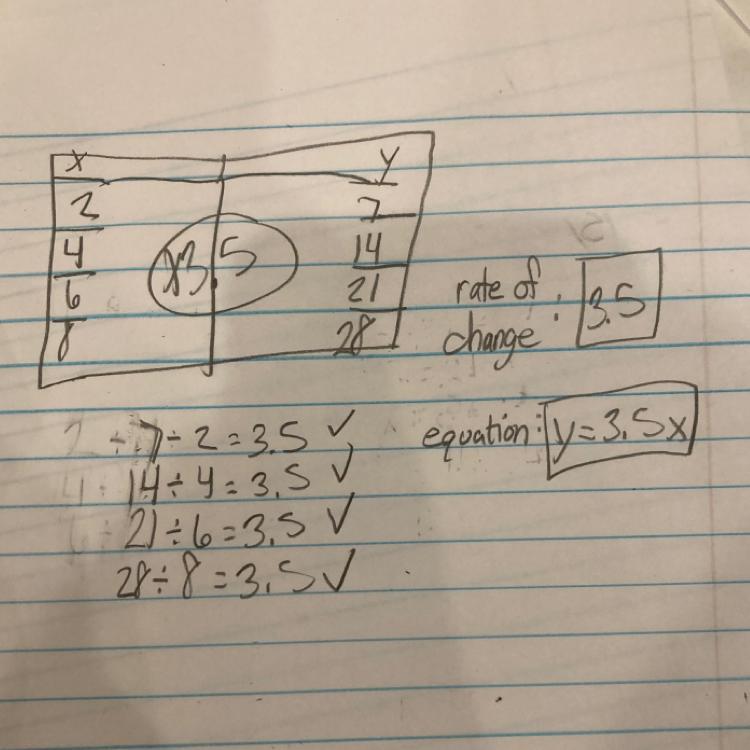 x y
2 7
4 14
x3.5
6 21
8 28
rate of change: 3.5
7 ÷ 2 = 3.5 ✓
equation: y = 3.5x
14 ÷ 4 = 3.5 ✓
21 ÷ 6 = 3.5 ✓
28 ÷ 8 = 3.5 ✓